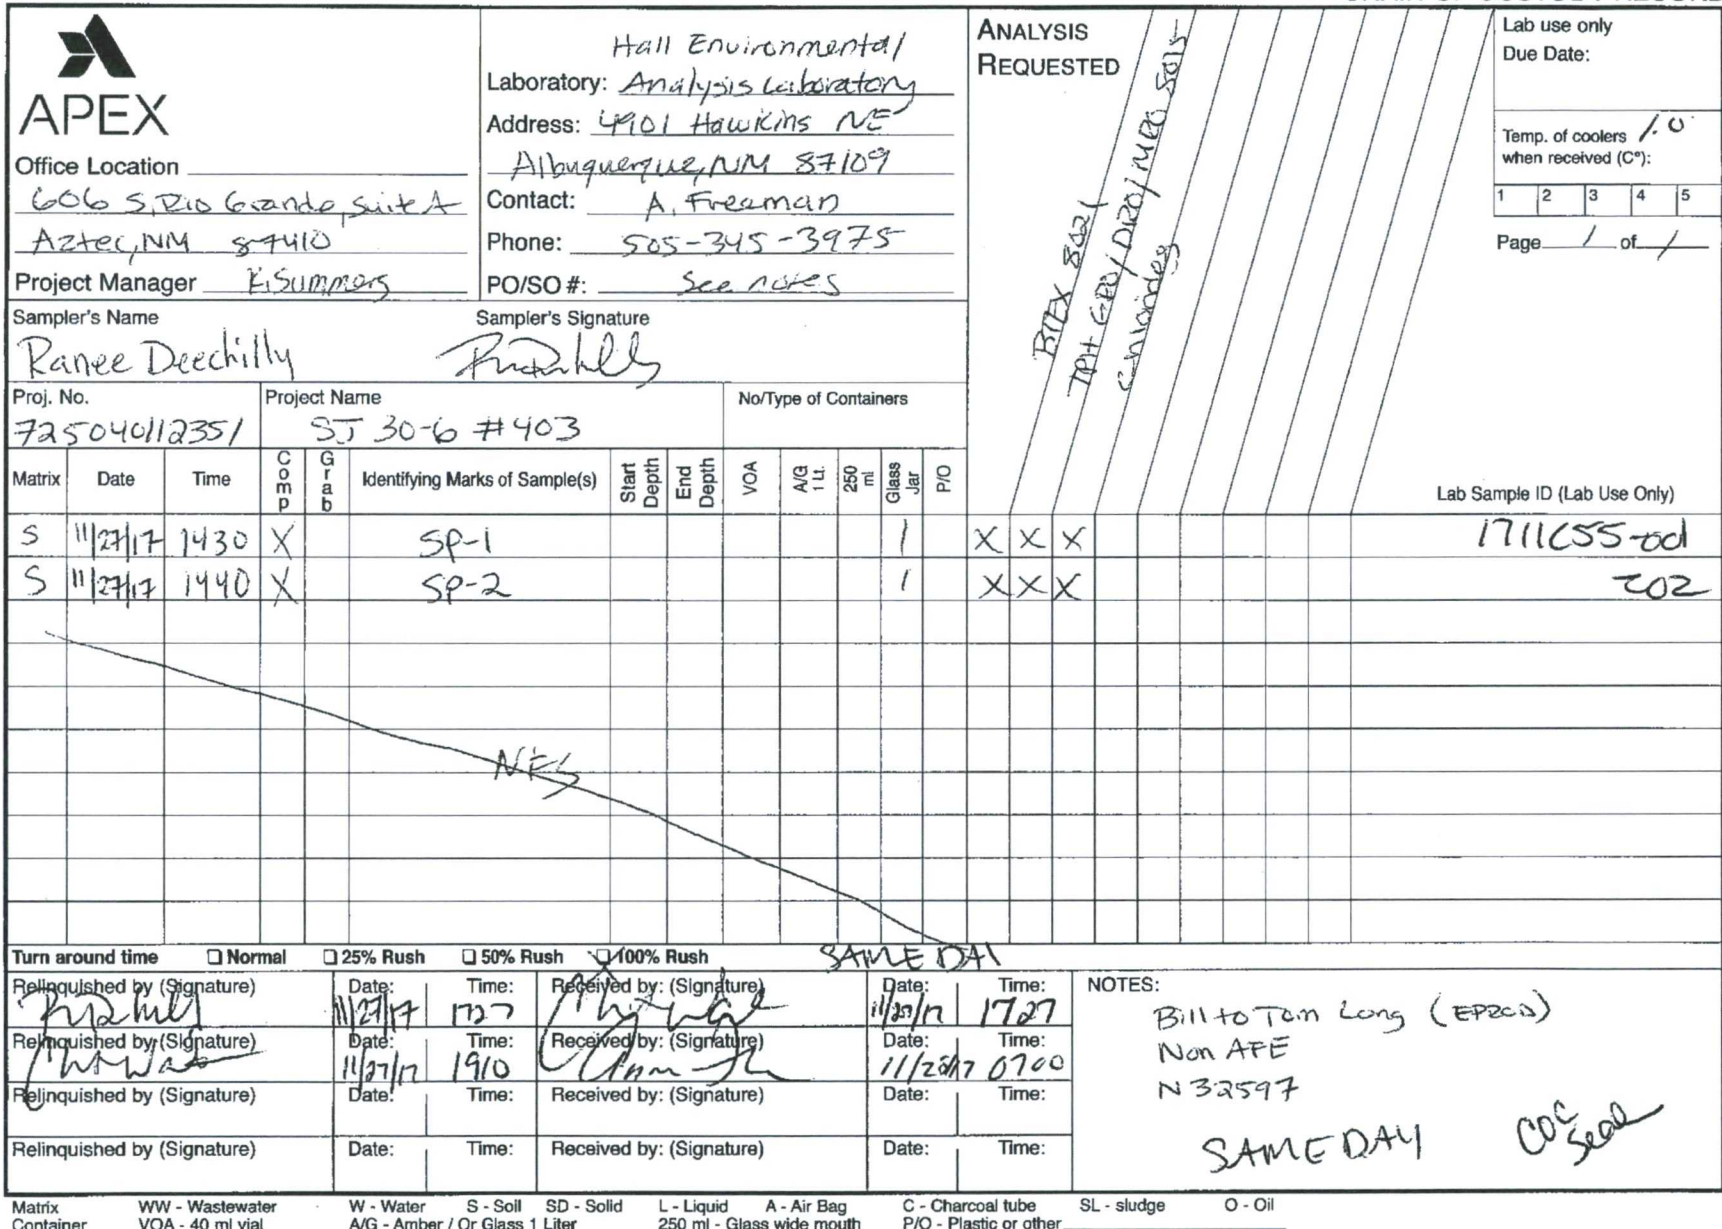 APEX
Office Location
606 S. Rio Grande, Suite A
Aztec, NM 87410
Project Manager K. Summers
Hall Environmental
Laboratory: Analysis Laboratory
Address: 4901 Hawkins NE
Albuquerque, NM 87109
Contact: A. Freeman
Phone: 505-345-3975
PO/SO #: See notes
ANALYSIS
REQUESTED
BTEX 8021
TPH GRO/DRO/MRO 8015
Chlorides
Lab use only
Due Date:
Temp. of coolers 1.0
when received (C°):
1 2 3 4 5
Page 1 of 1
Sampler's Name
Ranee Deechilly
Sampler's Signature
Proj. No.
725040112351
Project Name
SJ 30-6 #403
No/Type of Containers
Matrix Date Time Comp Grab Identifying Marks of Sample(s) Start Depth End Depth VOA A/G 1 Lt. 250 ml Glass Jar P/O Lab Sample ID (Lab Use Only)
S 11/27/17 1430 X SP-1 1 X X X 1711C55-001
S 11/27/17 1440 X SP-2 1 X X X 002
NFS
Turn around time Normal 25% Rush 50% Rush 100% Rush SAME DAY
Relinquished by (Signature) Date: 11/27/17 Time: 1727 Received by: (Signature) Date: 11/27/17 Time: 1727
Relinquished by (Signature) Date: 11/27/17 Time: 1910 Received by: (Signature) Date: 11/28/17 Time: 0700
Relinquished by (Signature) Date: Time: Received by: (Signature) Date: Time:
Relinquished by (Signature) Date: Time: Received by: (Signature) Date: Time:
NOTES:
Bill to Tom Long (EPROD)
Non AFE
N32597
SAME DAY
COC Seal
Matrix WW - Wastewater W - Water S - Soil SD - Solid L - Liquid A - Air Bag C - Charcoal tube SL - sludge O - Oil
Container VOA - 40 ml vial A/G - Amber / Or Glass 1 Liter 250 ml - Glass wide mouth P/O - Plastic or other